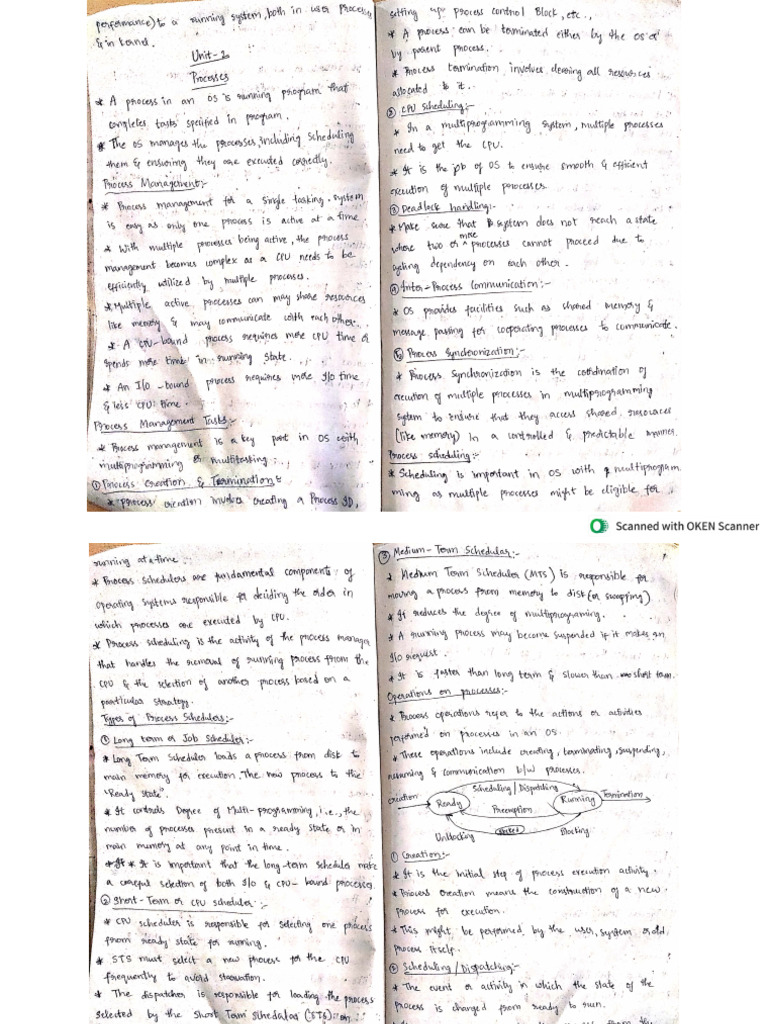 performance) to a running system, both in user processes
& in kernel.
Unit-2
Processes
* A process in an OS is running program that
completes tasks specified in program.
* The OS manages the processes, including scheduling
them & ensuring they are executed correctly.
Process Management:-
* Process management for a single tasking system
is easy as only one process is active at a time
* With multiple processes being active, the process
management becomes complex as a CPU needs to be
efficiently utilized by multiple processes.
* Multiple active processes can may share resources
like memory & may communicate with each other.
* A CPU-bound process requires more CPU time or
spends more time in running state.
* An I/O -bound process requires more I/o time
& less CPU time.
Process Management Tasks:-
* Process management is a key part in OS with
multiprogramming & multitasking.
① Process Creation & Termination:
* process creation involves creating a Process ID,
setting up process control Block, etc.,
* A process can be terminated either by the os or
by parent process.
* Process termination involves clearing all resources
allocated to it.
② CPU Scheduling:-
* In a multiprogramming system, multiple processes
need to get the CPU.
* It is the job of OS to ensure smooth & efficient
execution of multiple processes.
③ Deadlock handling:-
* Make sure that system does not reach a state
where two or more processes cannot proceed due to
cycling dependency on each other.
④ Inter-Process Communication:-
* OS provides facilities such as shared memory &
message passing for cooperating processes to communicate.
⑤ Process Synchronization:-
* Process Synchronization is the coordination of
execution of multiple processes in multiprogramming
system to ensure that they access shared resources
(like memory) in a controlled & predictable manner.
Process scheduling:-
* Scheduling is important in OS with multiprogram
ming as multiple processes might be eligible for
Scanned with OKEN Scanner
running at a time.
* Process schedulers are fundamental components of
operating systems responsible for deciding the order in
which processes are executed by CPU.
* Process scheduling is the activity of the process manager
that handles the removal of running process from the
CPU & the selection of another process based on a
particular strategy.
Types of Process Schedulers:-
① Long term or Job Scheduler:-
* Long Term Scheduler loads a process from disk to
main memory for execution. The new process to the
"Ready state".
* It controls Degree of Multi-programming, i.e., the
number of processes present in a ready state or in
main memory at any point in time.
* It is important that the long-term scheduler make
a careful selection of both I/O & CPU- bound processes.
② Short-Term or CPU scheduler:-
* CPU scheduler is responsible for selecting one process
from ready state for running.
* STS must select a new process for the CPU
frequently to avoid starvation.
* The dispatcher is responsible for loading the process
selected by the Short Term Scheduler (STS) on
③ Medium-Term Schedular:-
* Medium Term Scheduler (MTS) is responsible for
moving a process from memory to disk (or swapping).
* It reduces the degree of multiprogramming.
* A running process may become suspended if it makes an
I/O request.
* It is faster than long term & slower than short term.
Operations on processes:-
* Process operations refer to the actions or activities
performed on processes in an OS.
* These operations include creating, terminating, suspending,
resuming & communication b/w processes.
Scheduling/Dispatching
creation
Ready
Running
Termination
Preemption
Unblocking
Blocking
① Creation:-
* It is the initial step of process execution activity.
* Process creation means the construction of a new
process for execution.
* This might be performed by the user, system or old
process itself.
② Scheduling/Dispatching:-
* The event or activity in which the state of the
process is changed from ready to run.